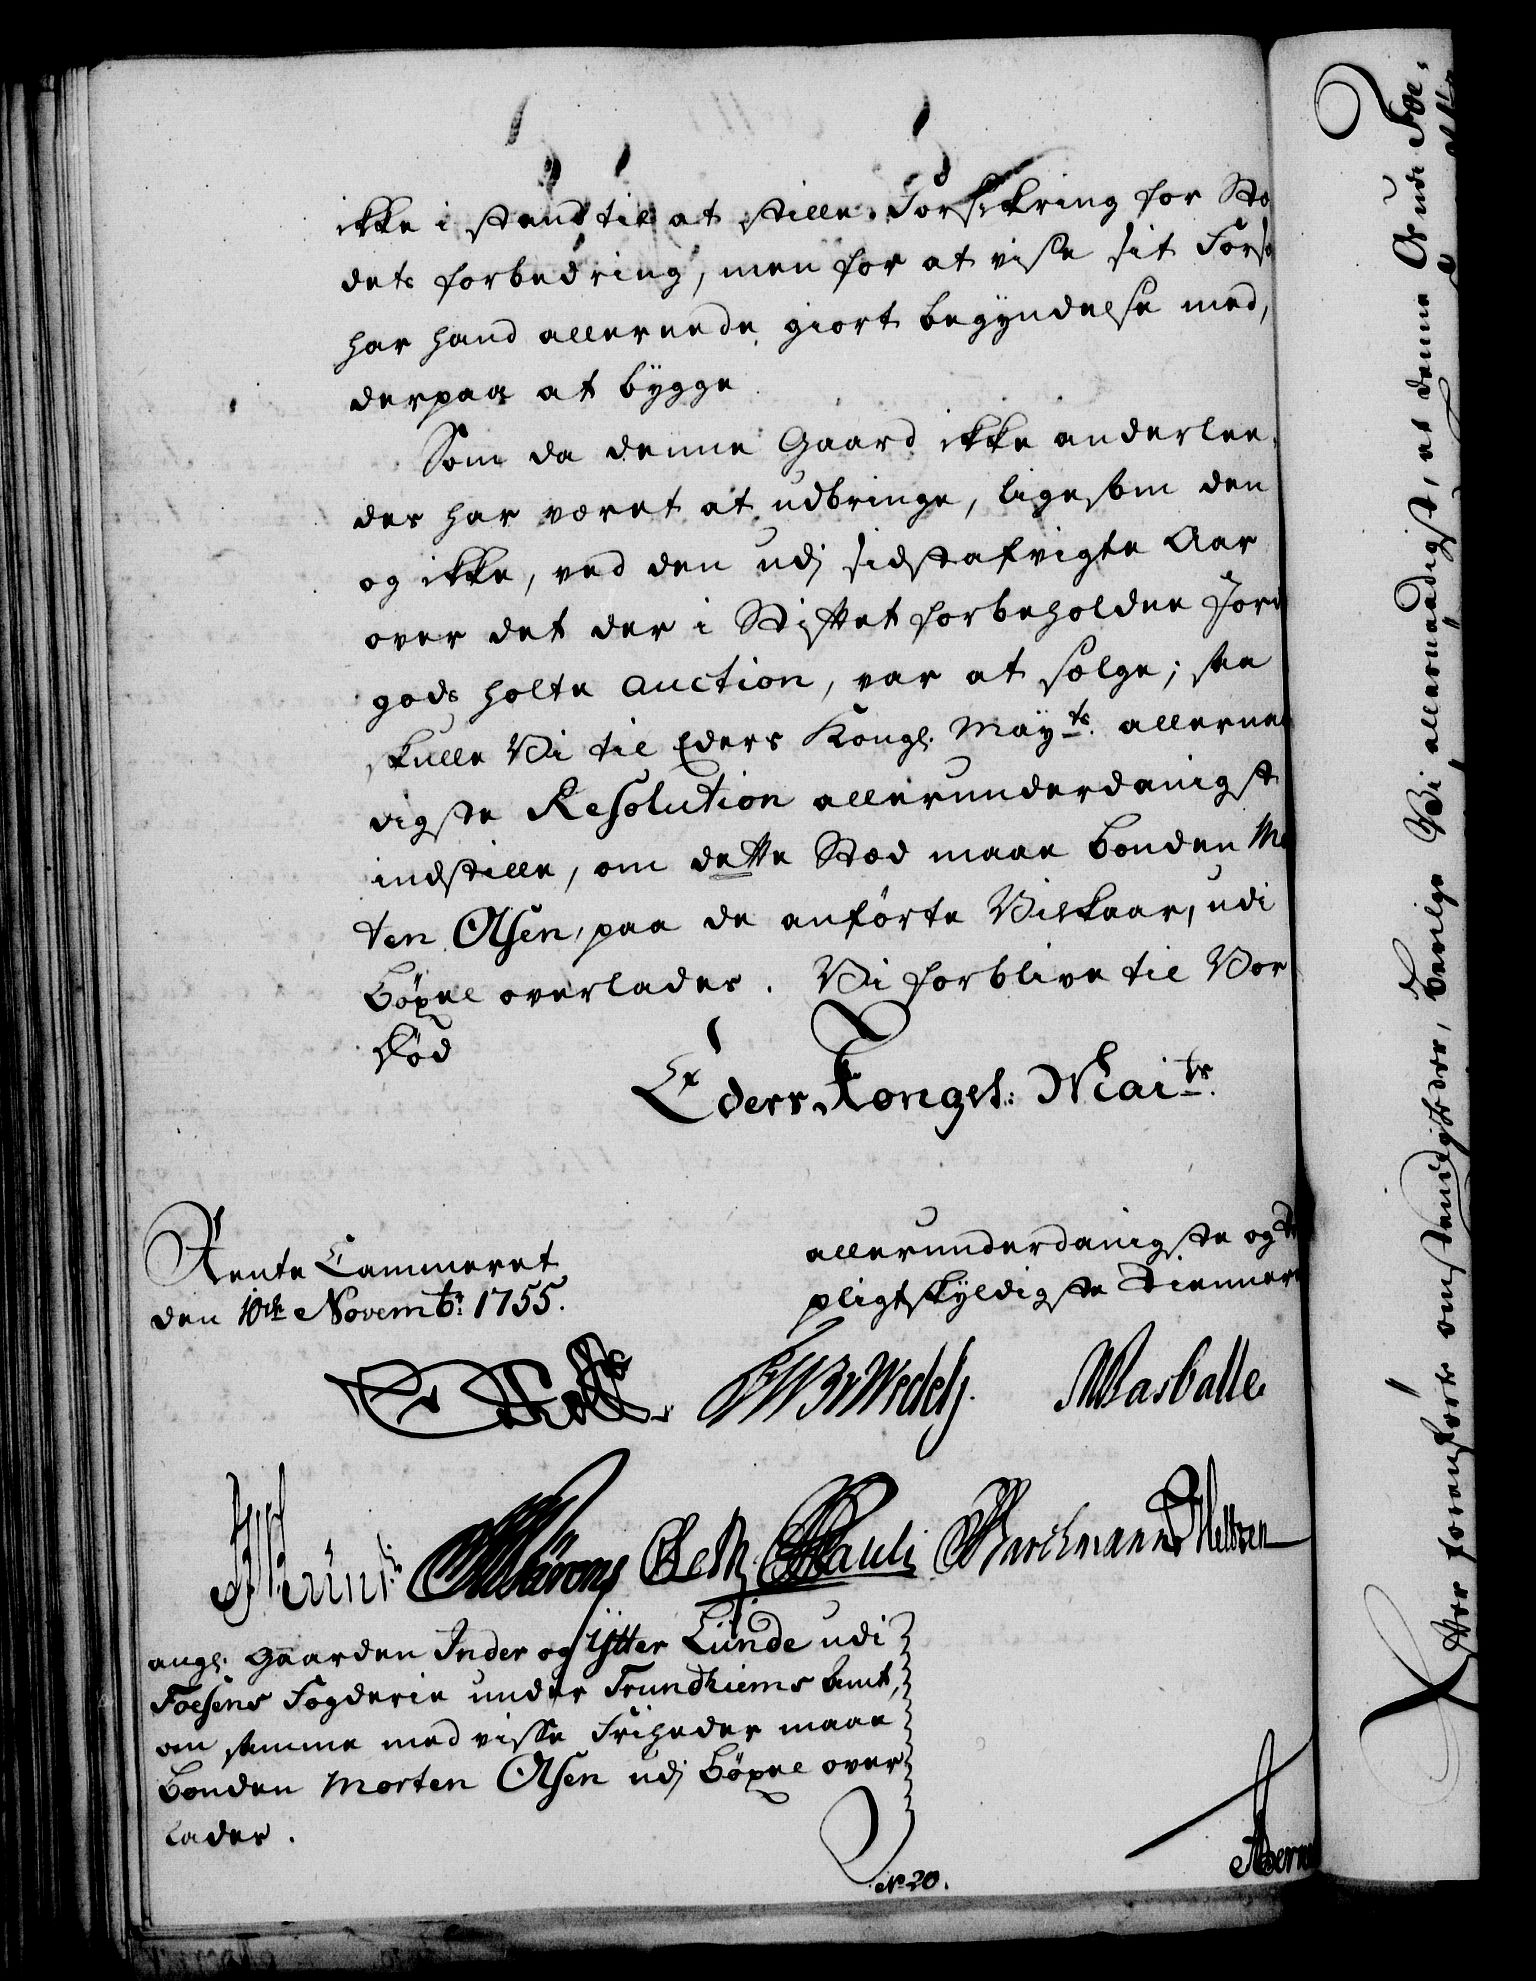 ikke i stand til at stille Forsikring for Stæ
dets forbedring, men for at vise sit Forsæ
har hand allereede giort begyndelse med,
derpaa at bygge
Som da denne Gaard ikke anderlee,
des har været at udbringe, ligesom den
og ikke, ved den udj sidstafvigte Aar
over det der i Stiftet forbeholdne Jord
gods holte Auction, var at sælge; saa
skulle Vi til Eders Kongl. Mayts. allernaa
digste Resolution allerunderdanigst
indstille, om dette Stæd maae bonden Mo
ten Olsen, paa de anførte Vilkaar, udi
Böxel overlades. Vi forblive til Vor
Död
Eders Kongel: Maits.
Rente Cammeret
den 10de Novembr: 1755.
allerunderdanigste og
pligtskyldigste Tiennere
Wedelj.
Masballe
Pauli Barchmann
angl. Gaarden Inder og Ytter Lunde udi
Foesens Fogderie under Trundhiems Amt,
om samme med visse Friheder maae
bonden Morten Olsen udj Böxel over
lades.
No 20.
Efter foranförte omstændigheder, bevilge Vi allernaadigst, at denne